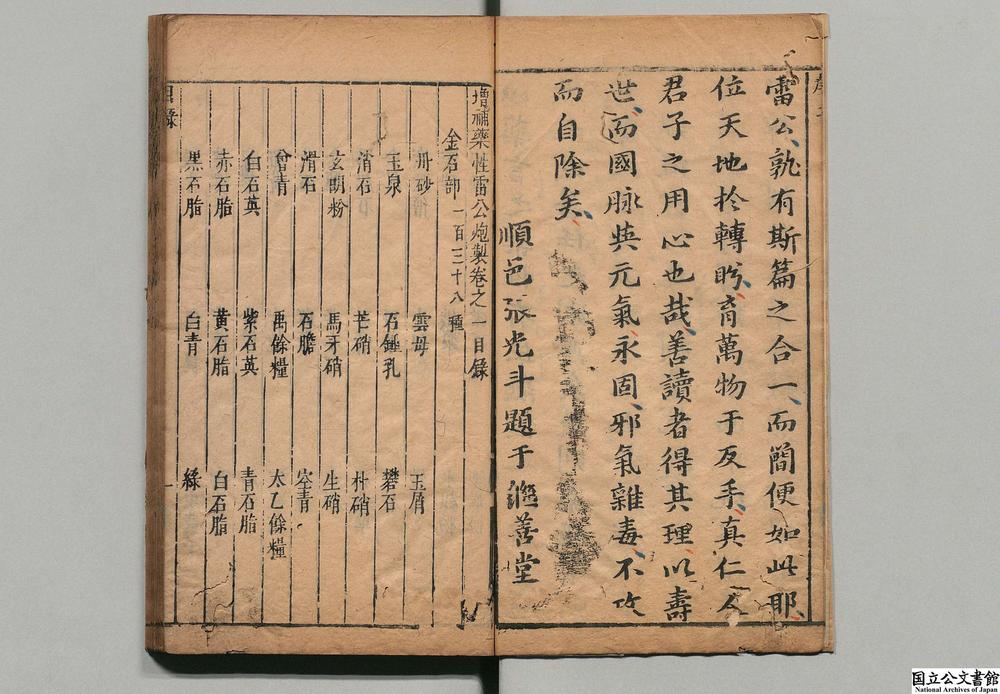 雷公、孰有斯篇之合一、而簡便如此耶、
位天地於轉盻、育萬物于反手、真仁人
君子之用心也哉、善讀者得其理、以壽
世、而國脉與元氣、永固、邪氣雜毒、不攻
而自除矣、
順邑張光斗題于繼善堂
增補藥性雷公炮製卷之一目錄
金石部一百三十八種
丹砂 雲母 玉屑
玉泉 石鍾乳 礬石
消石 芒硝 朴硝
玄明粉 馬牙硝 生硝
滑石 石膽 空青
曾青 禹餘糧 太乙餘糧
白石英 紫石英 青石脂
赤石脂 黃石脂 白石脂
黑石脂 白青 綠
目錄 一
国立公文書館
National Archives of Japan